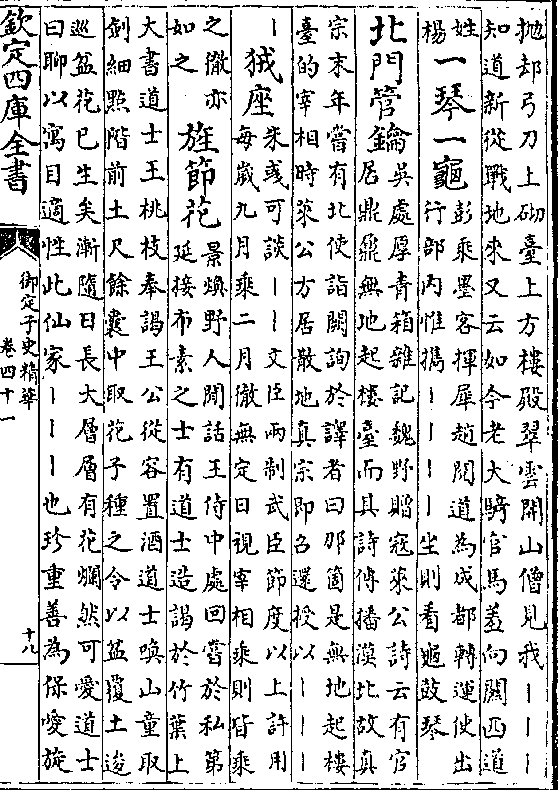 抛却弓刀上砌臺上方樓殿翠雲開山僧見我丨丨丨
知道新從戰地來又云如今老大騎官馬羞向關西道
姓
楊
一琴一龜
彭乘墨客揮犀趙閱道為成都轉運使出
行部内惟攜丨丨丨丨坐則看龜鼓琴
北門管鑰
吳處厚青箱雜記魏野贈寇萊公詩云有官
居鼎鼐無地起樓臺而其詩傳播漠北故真
宗末年嘗有北使詣闕詢於譯者曰那箇是無地起樓
臺的宰相時萊公方居散地真宗即召還授以丨丨丨
丨
狨座
朱彧可談丨丨文臣兩制武臣節度以上許用
每歲九月乘二月徹無定日視宰相乘則皆乘
之徹亦
如之
旌節花
景煥野人閒話王侍中處回嘗於私第
延接布素之士有道士造謁於竹葉上
大書道士王桃枝奉謁王公從容置酒道士喚山童取
劍細點階前土尺餘囊中取花子種之令以盆覆土逡
巡盆花已生矣漸隨日長大層層有花爛然可愛道士
曰聊以寓目適性此仙家丨丨丨也珍重善為保愛旋
欽定四庫全書
御定子史精華
卷四十一
十八